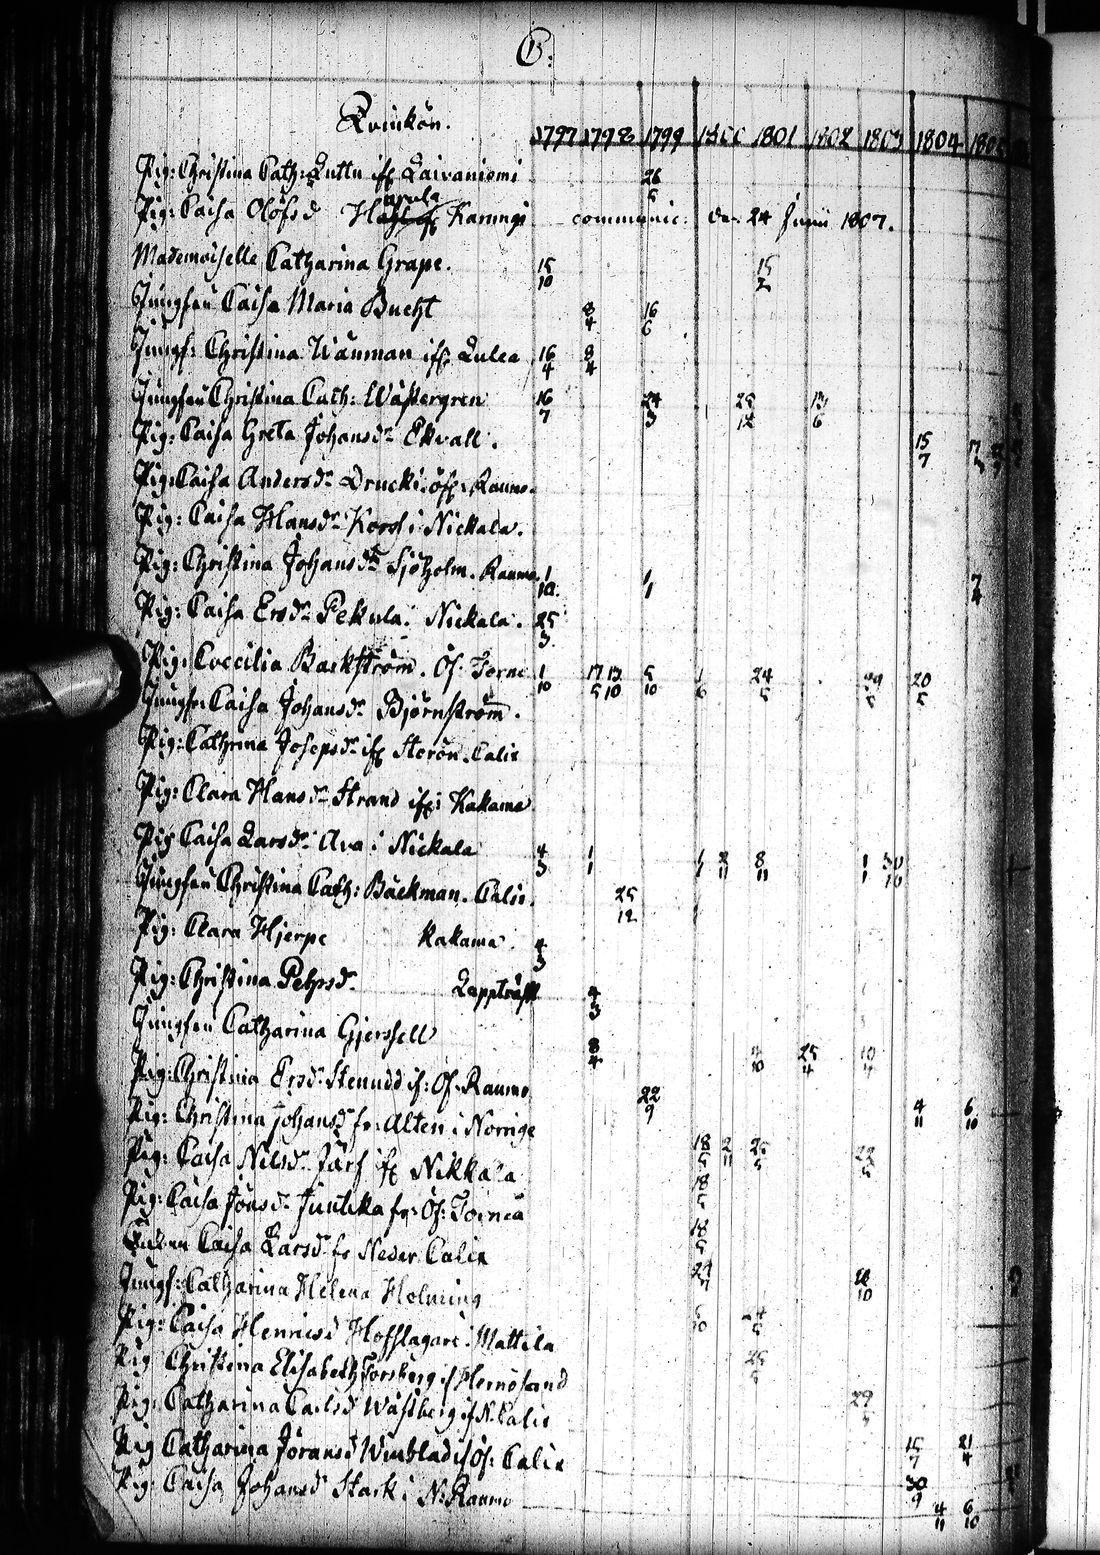 C:
Qvinkön.
1797 1798 1799 1800 1801 1802 1803 1804
Pig: Christina Cath: if Laivaniemi 26/5
Pig: Caisa Olofsd Karungi communic: den 24 Junii 1807.
Mademoiselle Catharina Grape. 15/10 15/2
Jungfru Caisa Maria Bucht 8/4 16/6
Jungf: Christina Wäuman if Lulea 16/4 8/4
Jungfru Christina Cath: Wästergren 16/7 24/3 6
Pig: Caisa Greta Johansdr Ekvall. 15/7
Pig: Caisa Andersdr Drucki Raumo
Pig: Caisa Hansdr i Nickala.
Pig: Christina Johansdr Sjöholm. Raumo 1/10. 1/1 7/4
Pig: Caisa Ersdr Pekula. Nickala. 25/3.
Pig: Coecilia Backström. Öf: Torne 1/10 17/5 12/10 5/10 1/6 24/5 20/5
Jungfr: Caisa Johansdr Björnström.
Pig: Cathrina Josepsdr if Storön. Calix
Pig: Clara Hansdr Strand if: Kakama
Pig Caisa Larsdr Ava i Nickala 4/3 1/1 1/1 2/11 8/11 1/1 30/10
Jungfru Christina Cath: Bäckman. Calix. 25/12
Pig: Clara Hjerpe Kakama. 4/3
Pig: Christina Pehrsd. Lappträsk 4/3
Jungfru Catharina Gjershell 8/4 25/4
Pig: Christina Ersdr Stenudd if: Öf: Raumo 22/9
Pig: Christina Johansdr fr: Alten i Norrige 4/11 6/10
Pig: Caisa Nilsdr Järf if Nikkala 18/5 2/11 25/5 22/5
Pig: Caisa Jönsdr Juntikka fr: Öf: Torneå 18/5
Caisa Larsdr fr Neder Calix 18/5
Jungf: Catharina Helena Holmring 24/7
Pig: Caisa Henricsd Hofslagare. Mattila
Pig Christina Elisabeth Forsberg if Hernösand 25/5
Pig: Catharina Carlsd Wästberg if N. Calix 29/5
Pig Catharina Joransd Winblad if Öf: Calix 15/7 21/4
Pig: Caisa Johansd Stark i N: Raumo 30/9 4/11 6/10